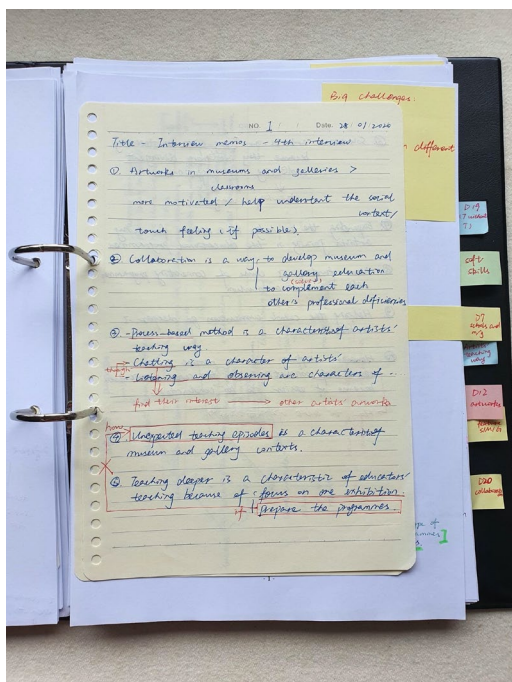 Big challenges:
different
NO. 1 Date. 28/01/2020
Title - Interview memos - 4th interview
① Artworks in museums and galleries >
classrooms
more motivated / help understant the social
context/
touch feeling (if possible).
② Collaboration is a way, to develop museum and
gallery education
(solve)
to complement each
other's professional dificiencies
③ - Process-based method is a characteristic of artists'
teaching way
- Chatting is a character of artists'
through
- Listening and observing are characters of ..
find their interest → other artists' artworks
how
④ Unexpected teaching episodes is a characteristic of
museum and gallery contexts.
⑤ Teaching deeper is a characteristic of educators'
teaching because of focus on one exhibition.
prepare the programmes.
- 1 -
D19
soft
skills
D7
D12
artworks
D20
collaboration